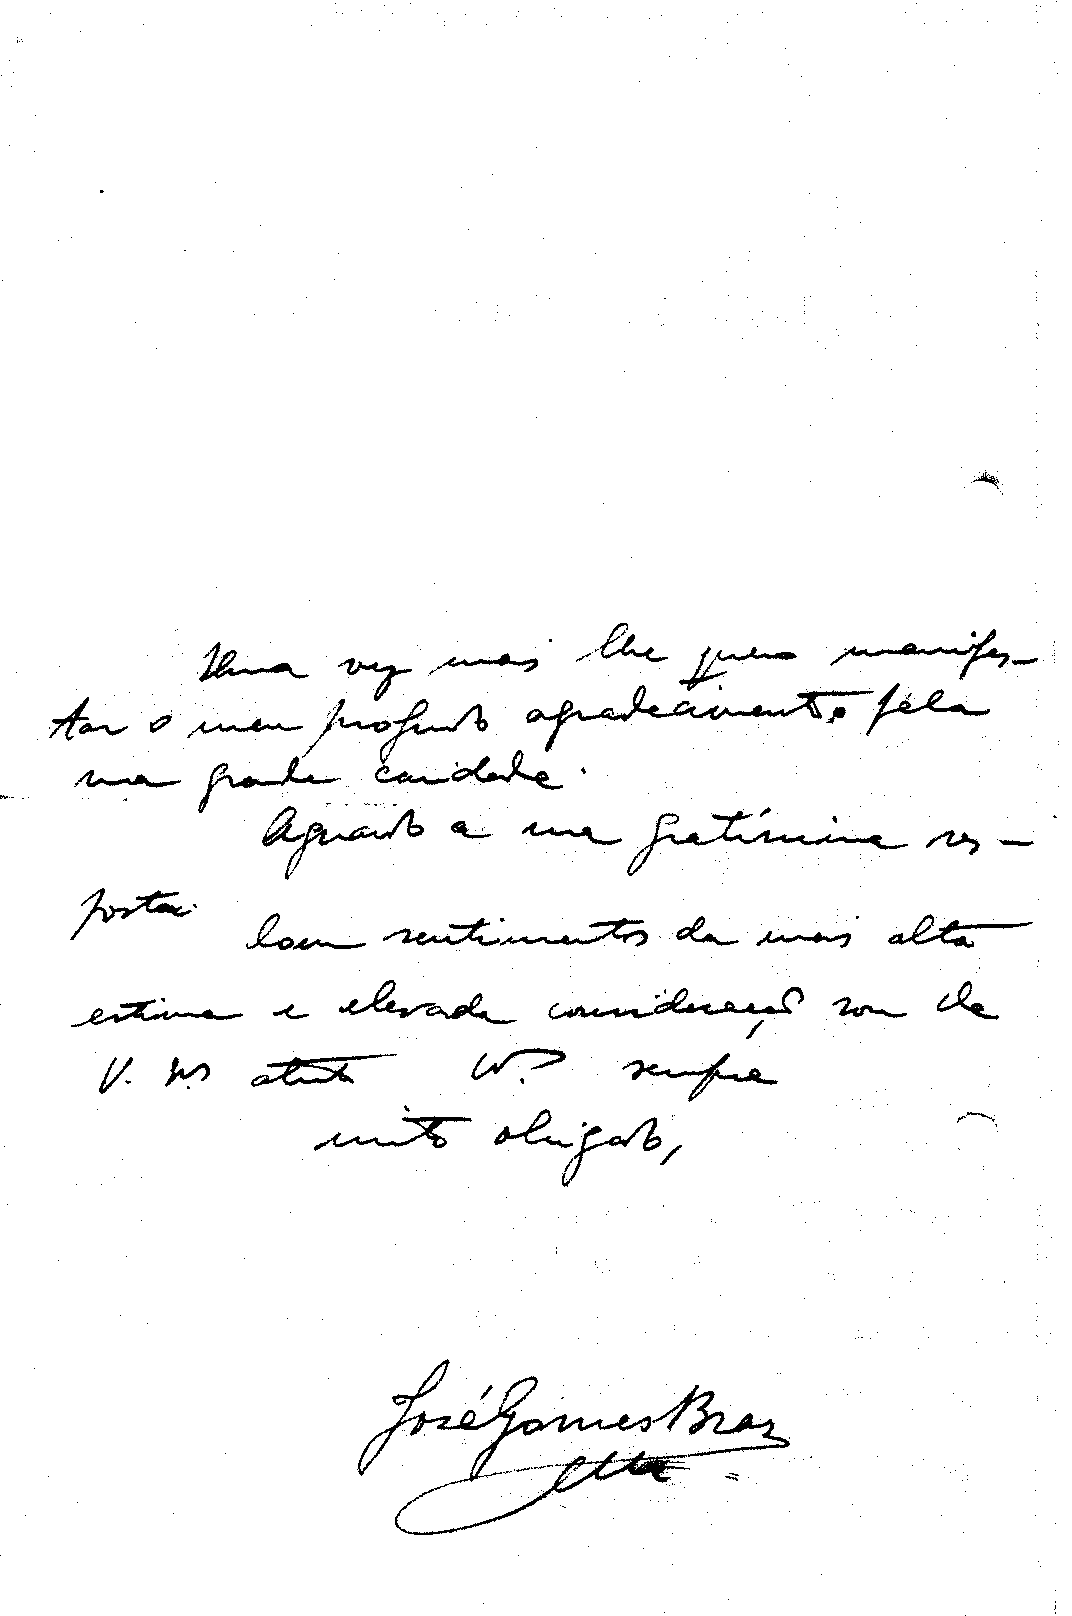 Uma vez mais lhe quero manifes-
tar o meu profundo agradecimento pela
sua grande caridade.
Aguardo a sua gratíssima res-
posta.
Com sentimentos da mais alta
estima e elevada consideração sou de
V. atento sempre
muito obrigado,
José Gomes Braz